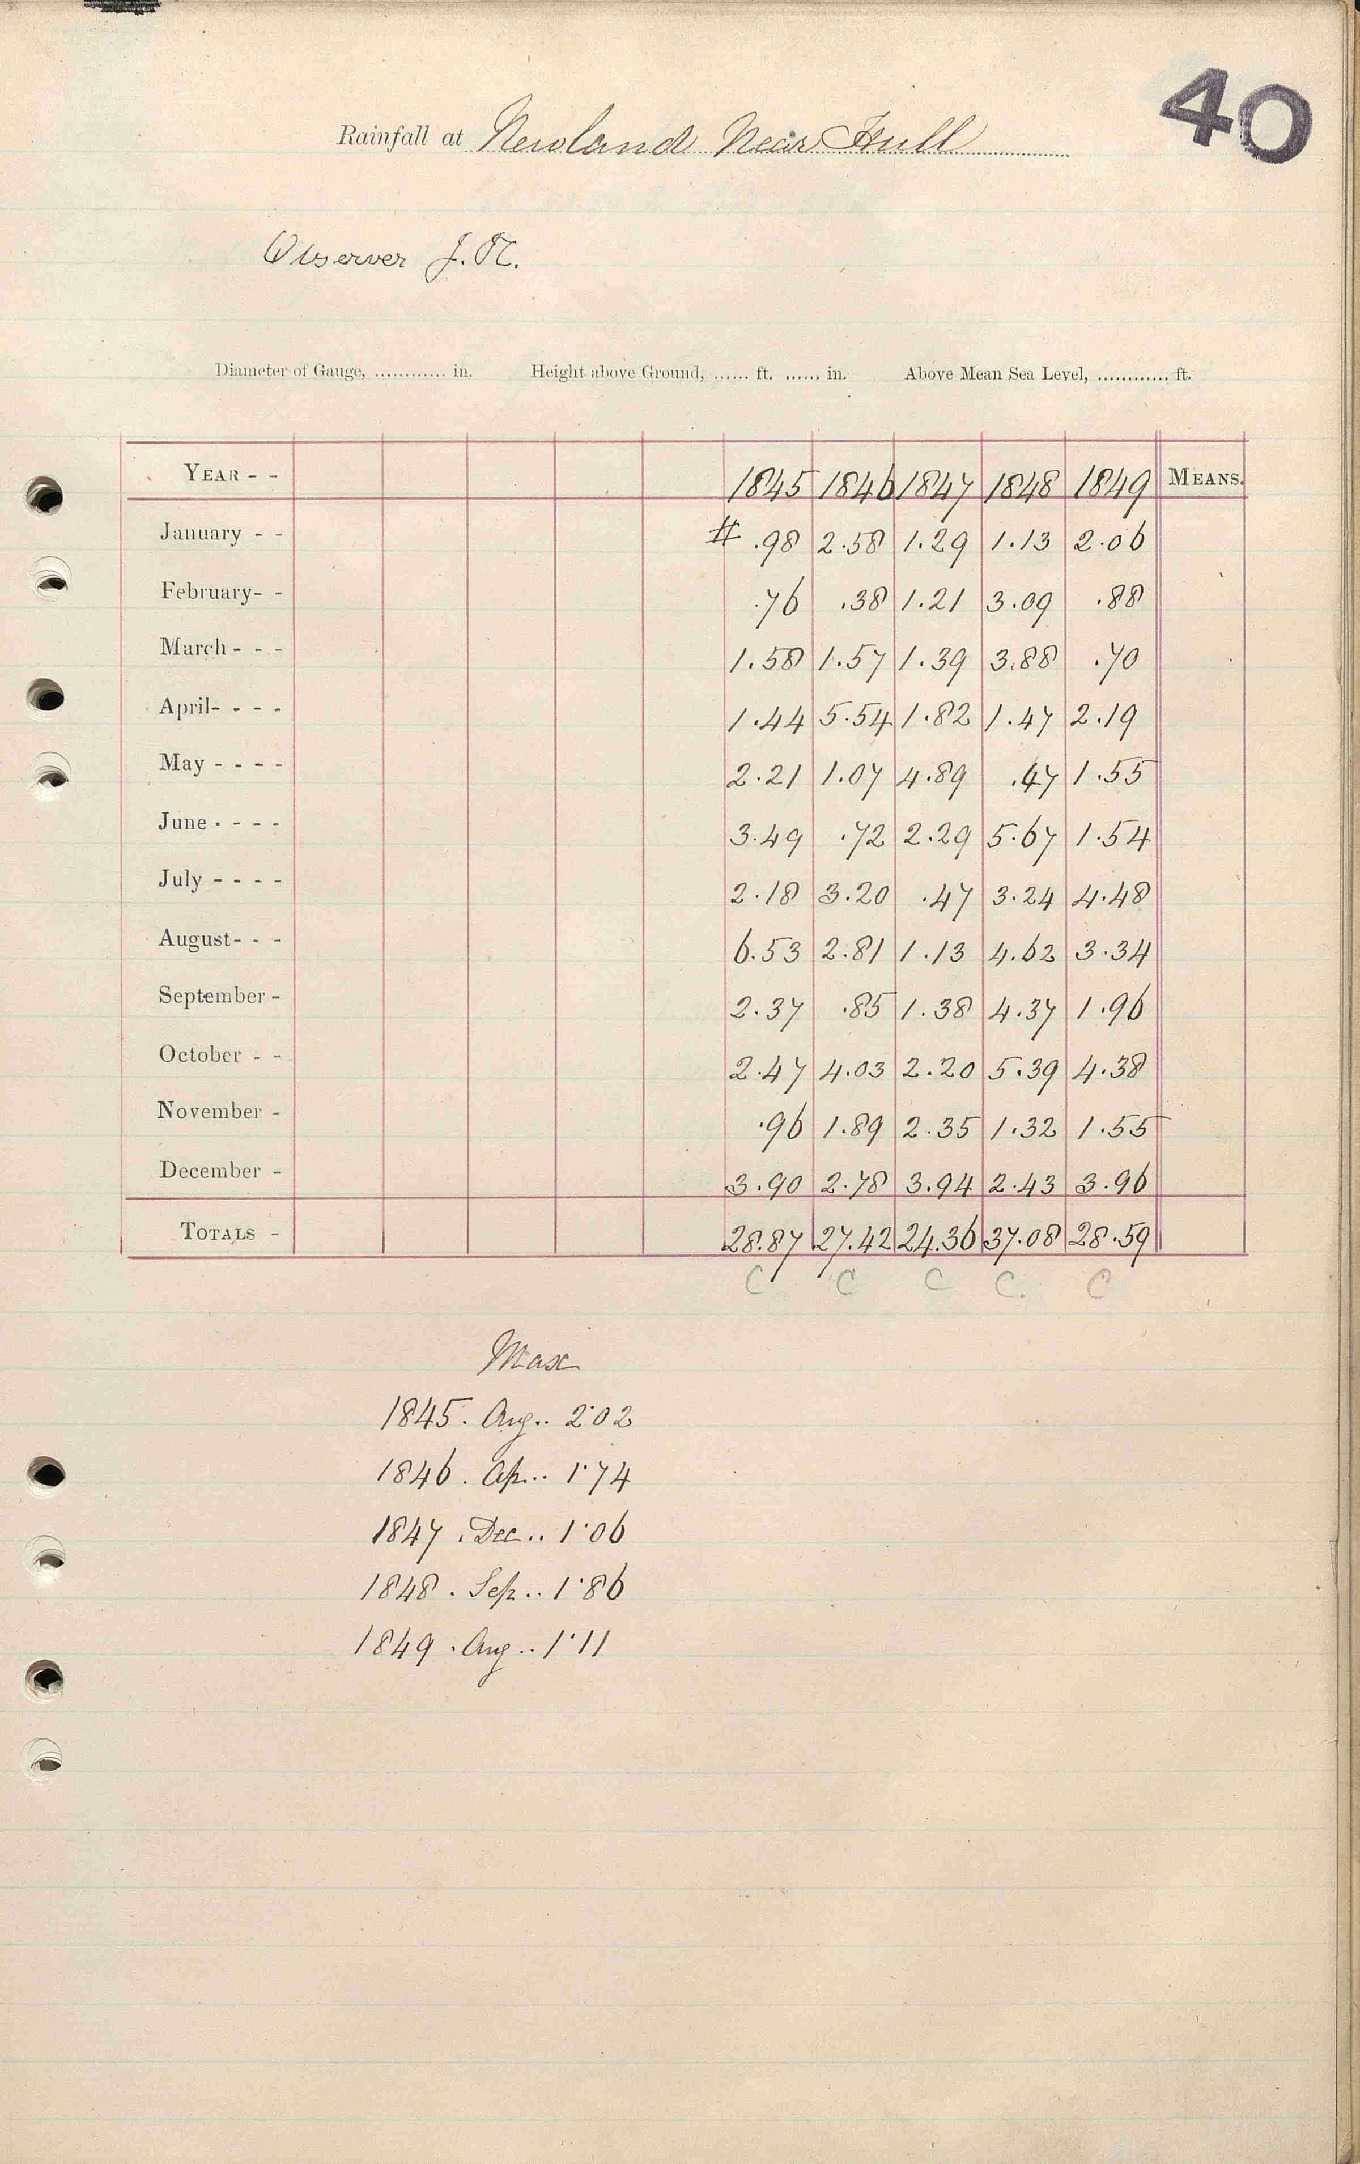 40
Rainfall at Newland Near Hull
Observer J. N.
Diameter of Gauge, ............ in. Height above Ground, ...... ft. ...... in. Above Mean Sea Level, ............ ft.
YEAR - - 1845 1846 1847 1848 1849 MEANS.
January - - # .98 2.58 1.29 1.13 2.06
February- - .76 .38 1.21 3.09 .88
March - - - 1.58 1.57 1.39 3.88 .70
April- - - - 1.44 5.54 1.82 1.47 2.19
May - - - - 2.21 1.07 4.89 .47 1.55
June - - - - 3.49 .72 2.29 5.67 1.54
July - - - - 2.18 3.20 .47 3.24 4.48
August- - - 6.53 2.81 1.13 4.62 3.34
September - 2.37 .85 1.38 4.37 1.96
October - - 2.47 4.03 2.20 5.39 4.38
November - .96 1.89 2.35 1.32 1.55
December - 3.90 2.78 3.94 2.43 3.96
TOTALS - 28.87 27.42 24.36 37.08 28.59
C C C C. C
Max
1845. Aug.. 2.02
1846. Ap... 1.74
1847. Dec.. 1.06
1848. Sep.. 1.86
1849. Aug.. 1.11